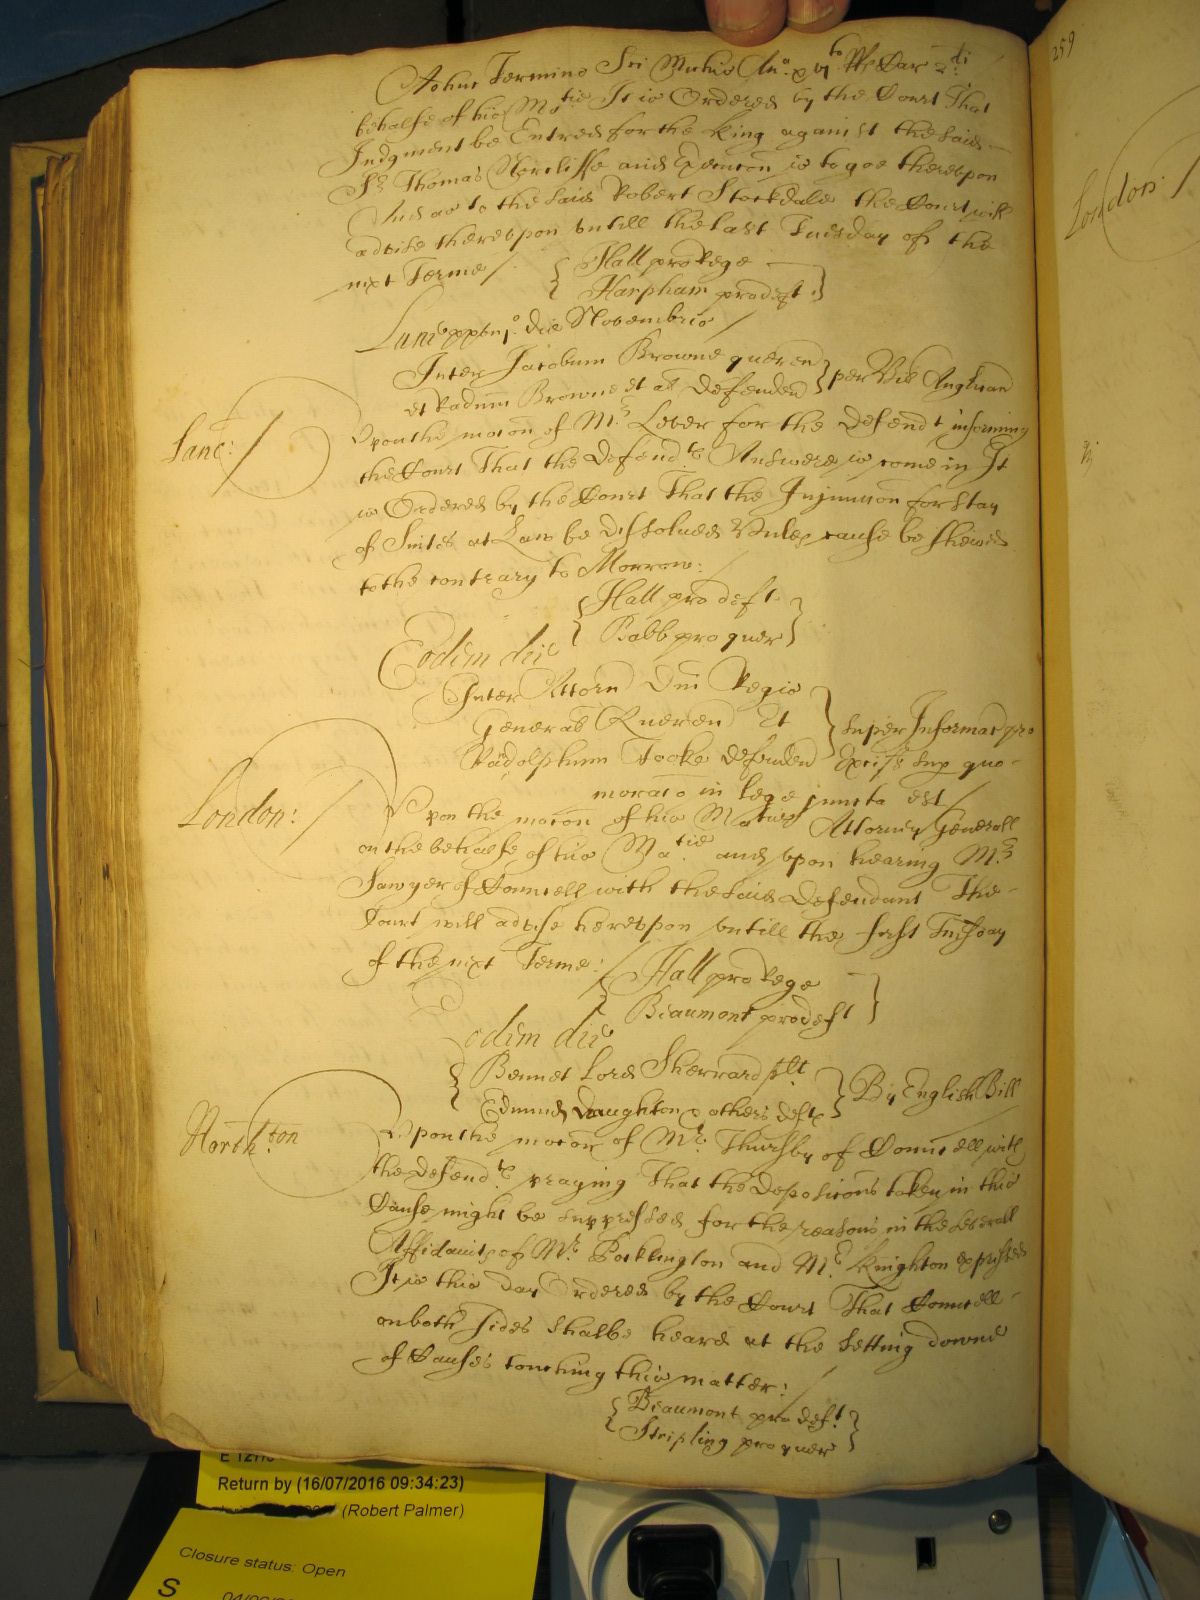 Adhuc Termino Sci Michis Anno xvjto RRs Car 2di
behalfe of his Matie It is Ordered by the Court That
Judgment be Entred for the King against the said
Sr Thomas Norcliffe and Execucon is to goe thereupon
And as to the said Robert Stockdale the Court will
advise thereupon untill the last Tuesday of the
next Terme /
Hall pro Rege
Harpham pro deft
Lune die Novembris /
Inter Jacobum Browne queren
et Radum Browne et al Defenden
per Bill Anglican
Lanc: /
Upon the mocon of Mr Lever for the Defendt informing
the Court That the Defendts Answere is come in It
is Ordered by the Court That the Injunccon for stay
of Suites at Law be dissolued Vnles cause be shewed
to the contrary to Morrow: /
Hall pro deft
Babb pro quer
Eodem die
Inter Attorn Dni Regis
General Queren Et
Radolphum Tooke Defenden
super Informat pro
Exciss sup quo
morato in lege juncta est /
London: /
Vpon the mocon of his Maties Attorney Generall
on the behalfe of his Matie and vpon hearing Mr
Sawyer of Councell with the said Defendant The
Court will advise hereupon vntill the first Tuesday
of the next Terme: /
Hall pro Rege
Beaumont pro deft
Eodem die
Bennet Lord Sherrard plt
Edmund Daughton & others defts
By English Bill
North:ton
Vpon the mocon of Mr Thursby of Councell with
the Defendts praying That the Deposicons taken in this
Cause might be suppressed for the reasons in the severall
Affidauits of Mr Pocklington and Mr Knighton expressed
It is this day Ordered by the Court That Councell
on both sides shalbe heard at the setting downe
of Causes touching this matter: /
Beaumont pro deft
Stripling pro quer
259
London: /
Return by (16/07/2016 09:34:23)
(Robert Palmer)
Closure status: Open
S